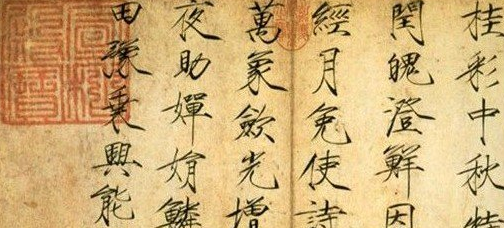 桂彩中秋特
閏魄澄鮮因
經月免使詩
萬象歛光增
夜助嬋娟鱗
田豫乘興能